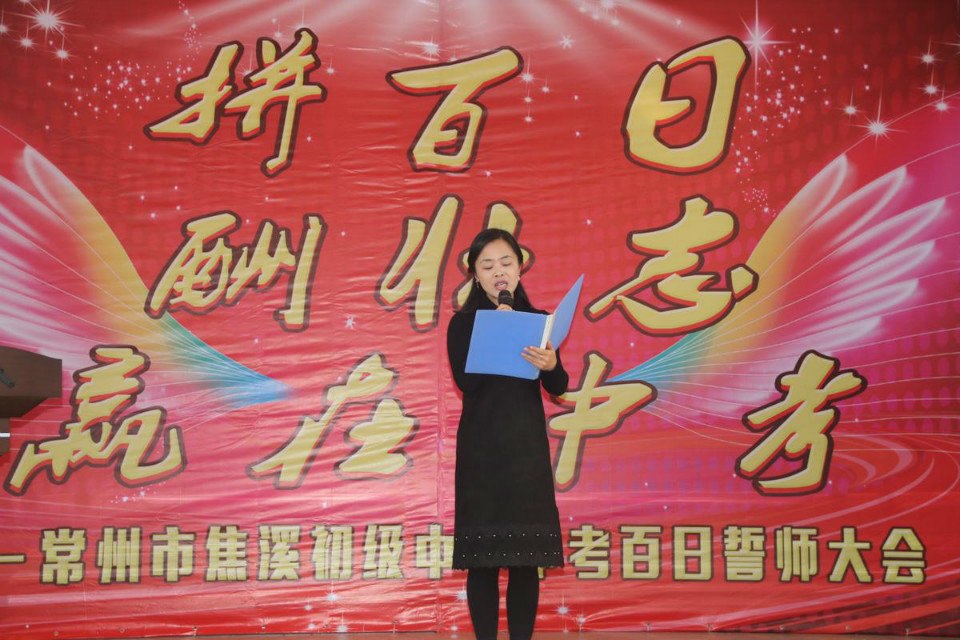 拼百日
酬壮志
赢在中考
一常州市焦溪初级中考百日誓师大会